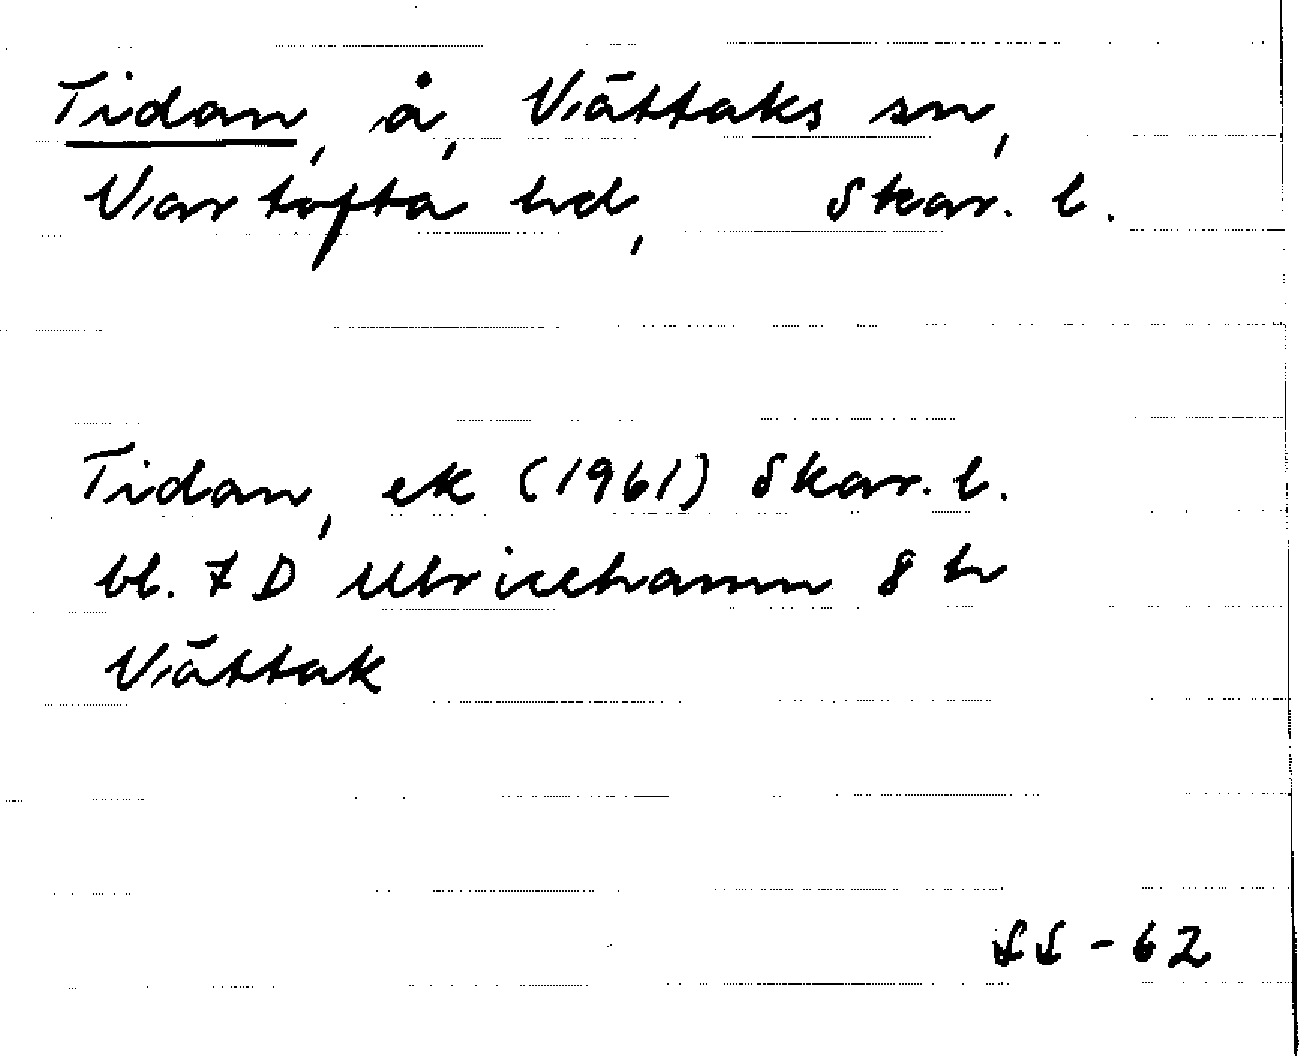 Tidan, å, Vättaks sn,
Vartofta hd, Skar. l.
Tidan, ek (1961) Skar. l.
bl. 7 D Ulricehamn 8 h
Vättak
SS - 62